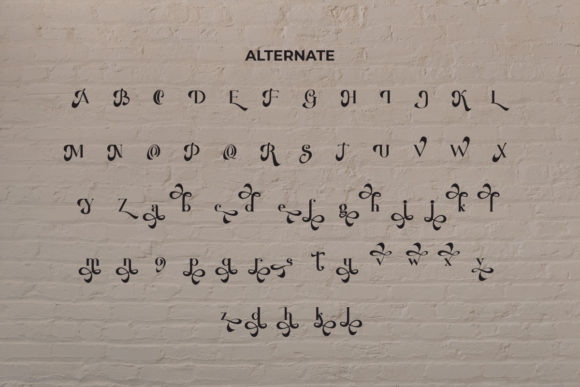 ALTERNATE
A B C D E F G H I J K L
M N O P Q R S T U V W X
Y Z a b c d e f g h i j k l
m n o p q r s t u v w x y
z d h k l